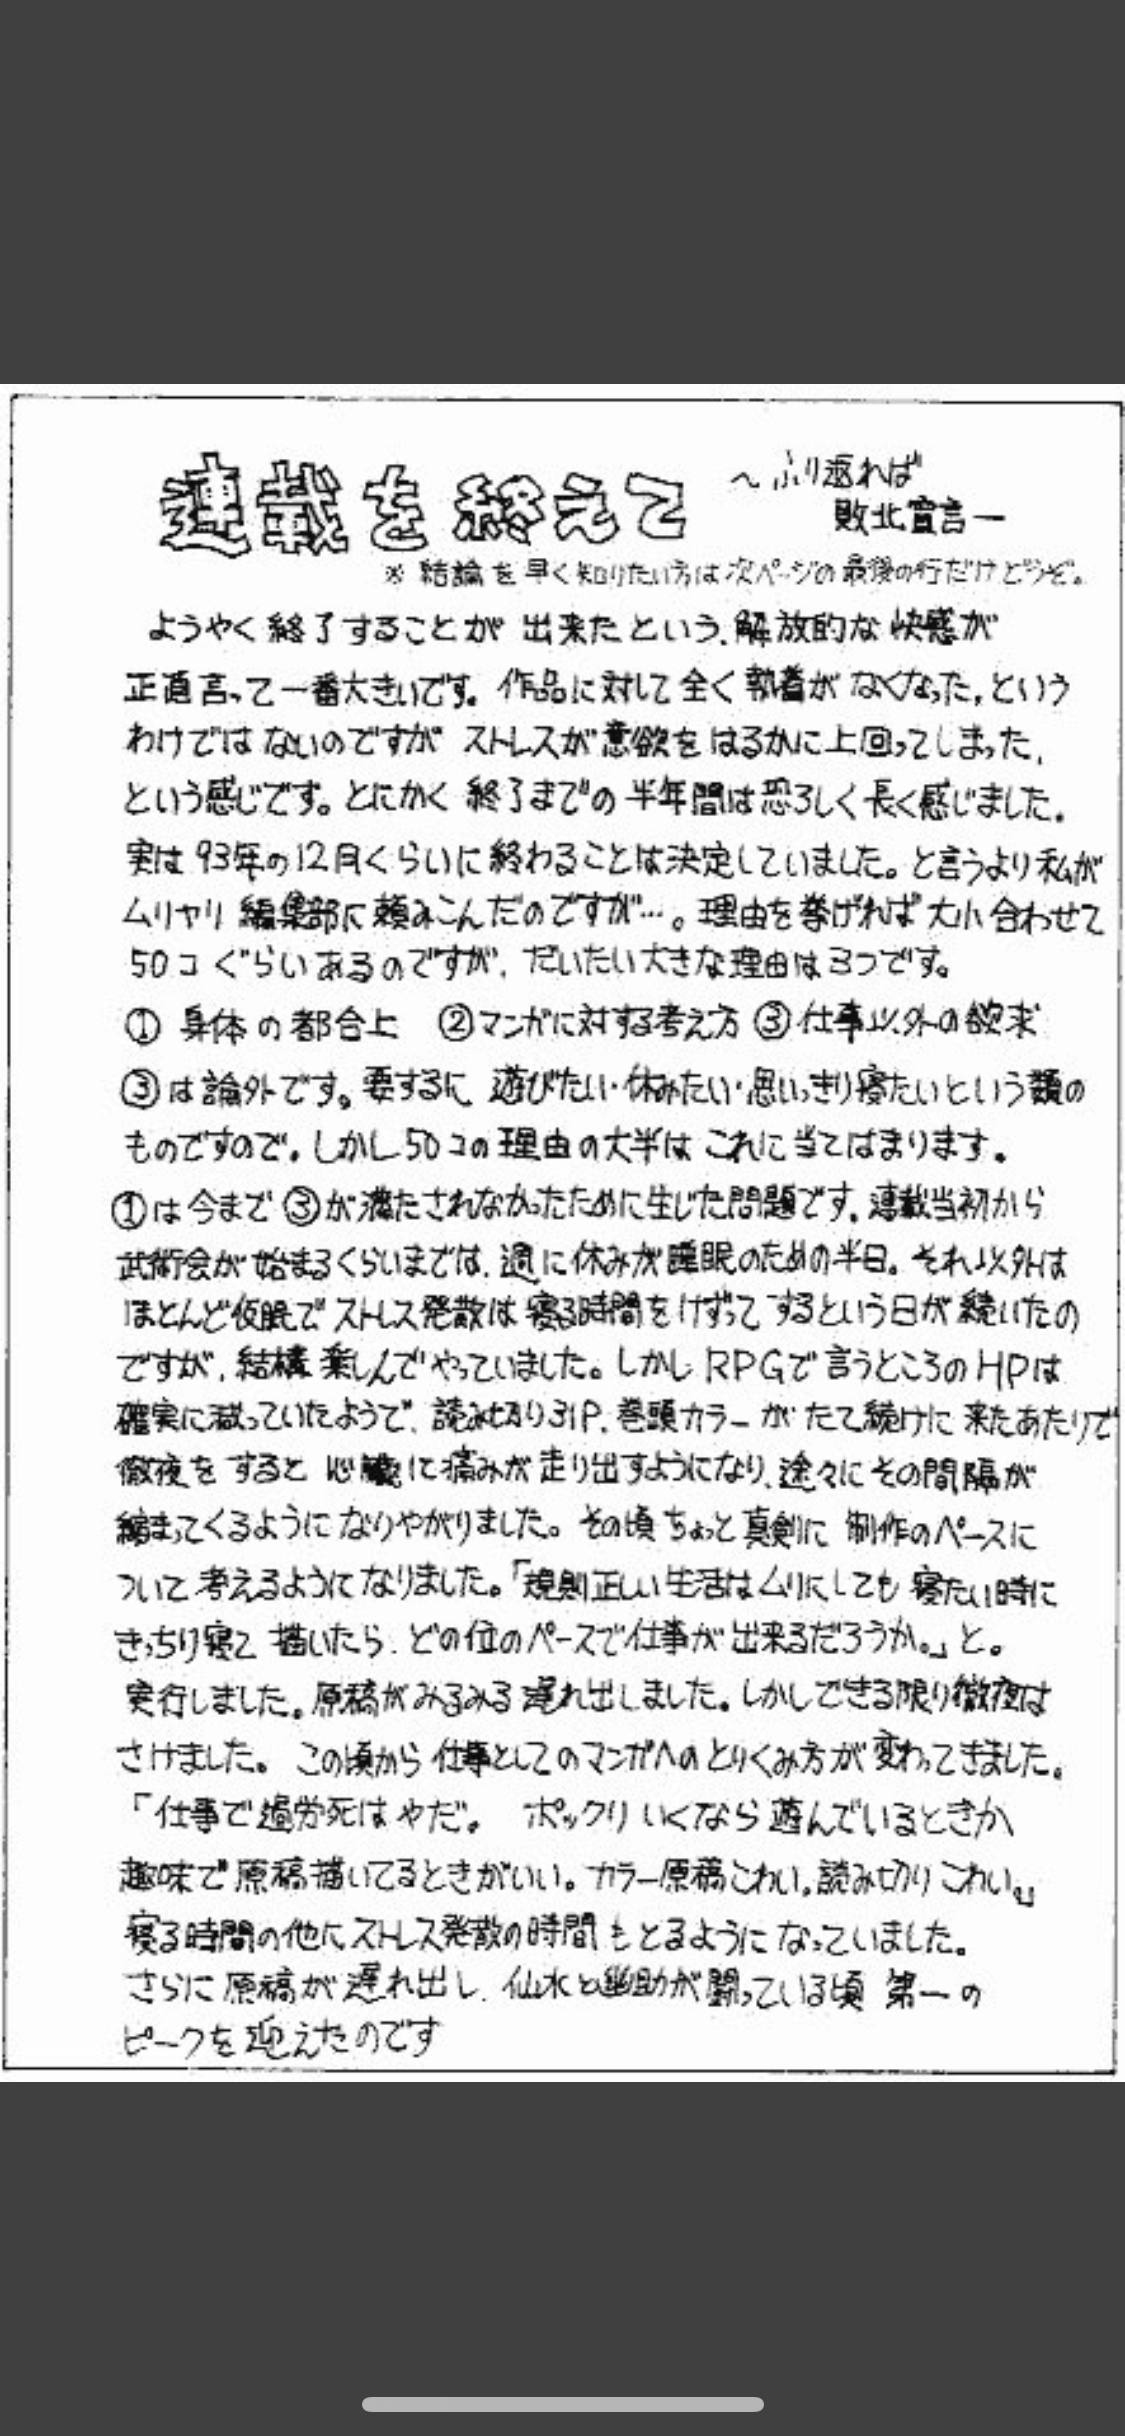 連載を終えて
〜ふり返れば
敗北宣言ー
※ 結論を早く知りたい方は次ページの最後の行だけどうぞ。
ようやく終了することが出来たという、解放的な快感が
正直言って一番大きいです。作品に対して全く執着がなくなった、という
わけではないのですがストレスが意欲をはるかに上回ってしまった、
という感じです。とにかく終了までの半年間は恐ろしく長く感じました。
実は93年の12月くらいに終わることは決定していました。と言うより私が
ムリヤリ編集部に頼みこんだのですが…。理由を挙げれば大小合わせて
50コぐらいあるのですが、だいたい大きな理由は3つです。
① 身体の都合上 ②マンガに対する考え方 ③仕事以外の欲求
③は論外です。要するに遊びたい・休みたい・思いっきり寝たいという類の
ものですので。しかし50コの理由の大半はこれに当てはまります。
①は今まで③が満たされなかったために生じた問題です。連載当初から
武術会が始まるくらいまでは、週に休みが睡眠のための半日。それ以外は
ほとんど仮眠でストレス発散は寝る時間をけずってするという日が続いたの
ですが、結構楽しんでやっていました。しかしRPGで言うところのHPは
確実に減っていたようで、読み切り31P、巻頭カラーがたて続けに来たあたりで
徹夜をすると心臓に痛みが走り出すようになり、途々にその間隔が
縮まってくるようになりやがりました。その頃ちょっと真剣に制作のペースに
ついて考えるようになりました。「規則正しい生活はムリにしても寝たい時に
きっちり寝て描いたら、どの位のペースで仕事が出来るだろうか。」と。
実行しました。原稿がみるみる遅れ出しました。しかしできる限り徹夜は
さけました。この頃から仕事としてのマンガへのとりくみ方が変わってきました。
「仕事で過労死はやだ。ポックリいくなら遊んでいるときか
趣味で原稿描いてるときがいい。カラー原稿こわい。読み切りこわい。」
寝る時間の他にストレス発散の時間もとるようになっていました。
さらに原稿が遅れ出し、仙水と幽助が闘っている頃第一の
ピークを迎えたのです